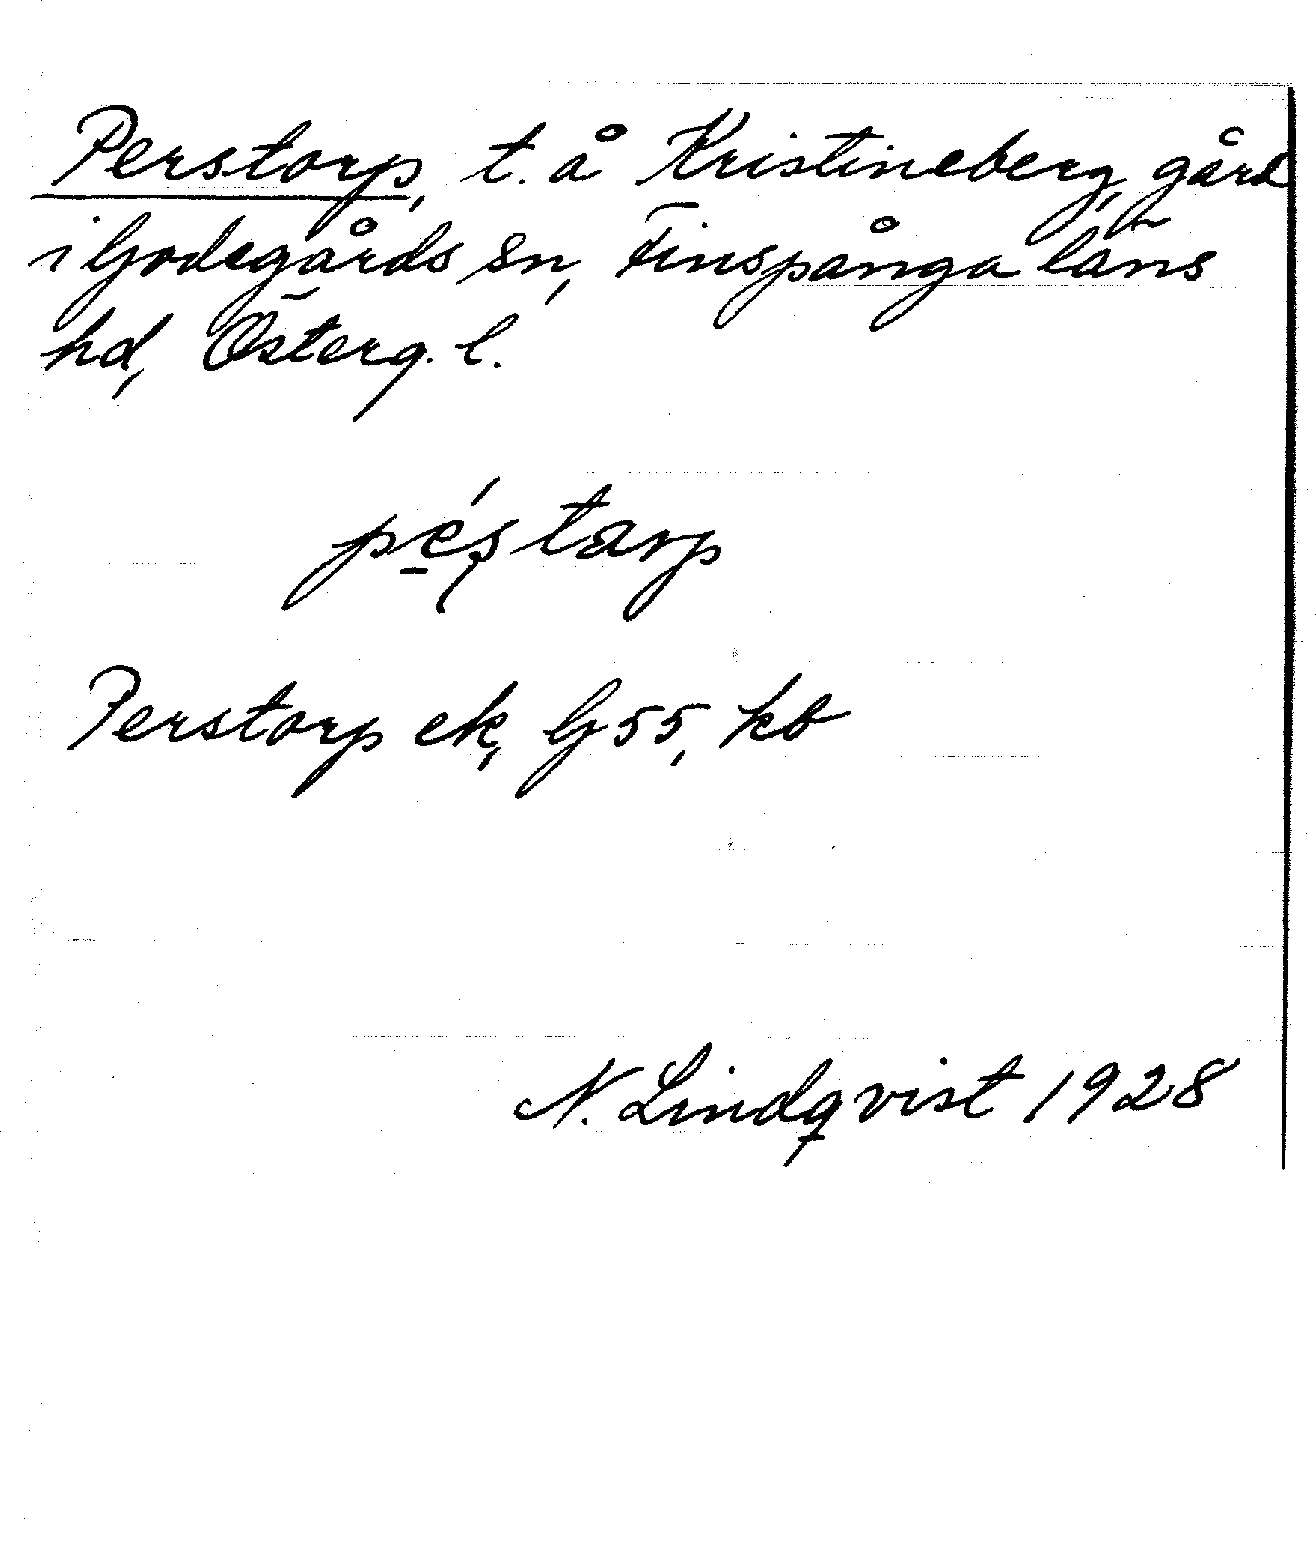 Perstorp, t. å Kristineberg, gård
i Godegårds sn, Finspånga läns
hd, Österg. l.
pe̱ʹs̨tarp
Perstorp ek, G 55, kb
N. Lindqvist 1928